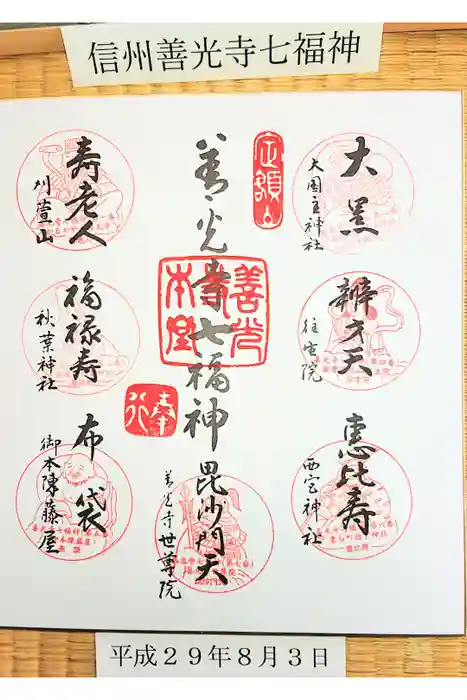 信州善光寺七福神
大黒
大国主神社
辨才天
往生院
恵比寿
西宮神社
定額山
善光寺七福神
善光寺
本堂
毘沙門天
善光寺世尊院
奉行
寿老人
刈萱山
福禄寿
秋葉神社
布袋
御本陳藤屋
平成29年8月3日